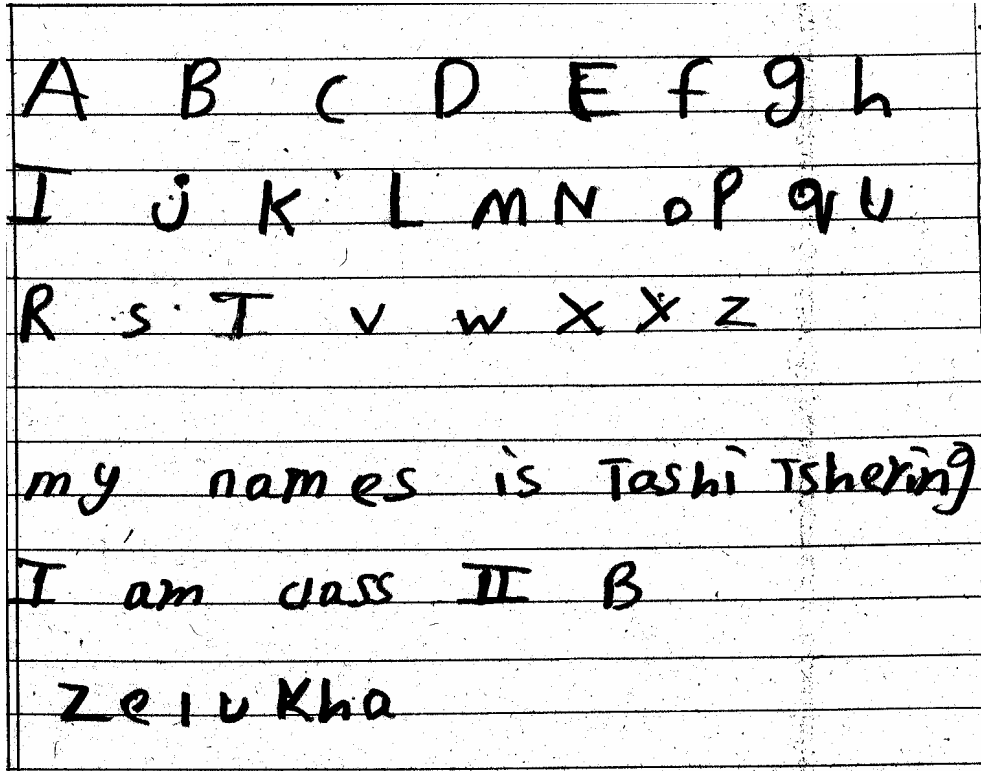 A B C D E f g h
I j K L m N o P q U
R s T v w X X z
my names is Tashi Tshering
I am class II B
Zelukha